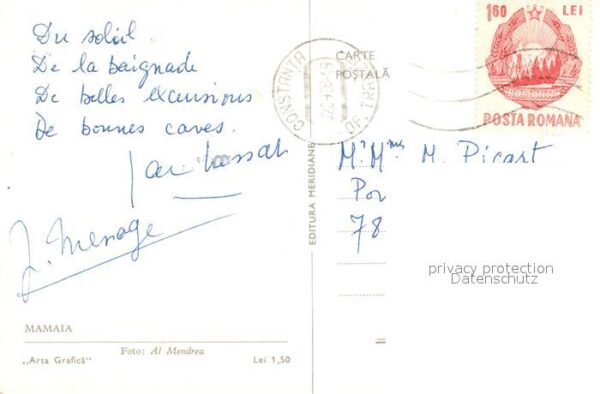 Du soleil
De la baignade
De belles excursions
De bonnes caves.
J. Menage
MAMAIA
Foto: Al Mendrea
„Arta Grafică"
Lei 1,50
EDITURA MERIDIANE
CARTE
POȘTALĂ
CONSTANȚA
1,60 LEI
POSTA ROMANA
M. Picart
78
privacy protection
Datenschutz